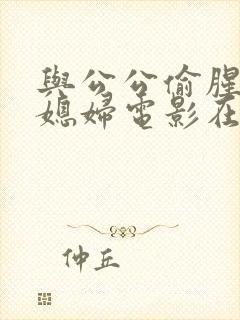 與公公偷腥
媳婦電影在
仲丘